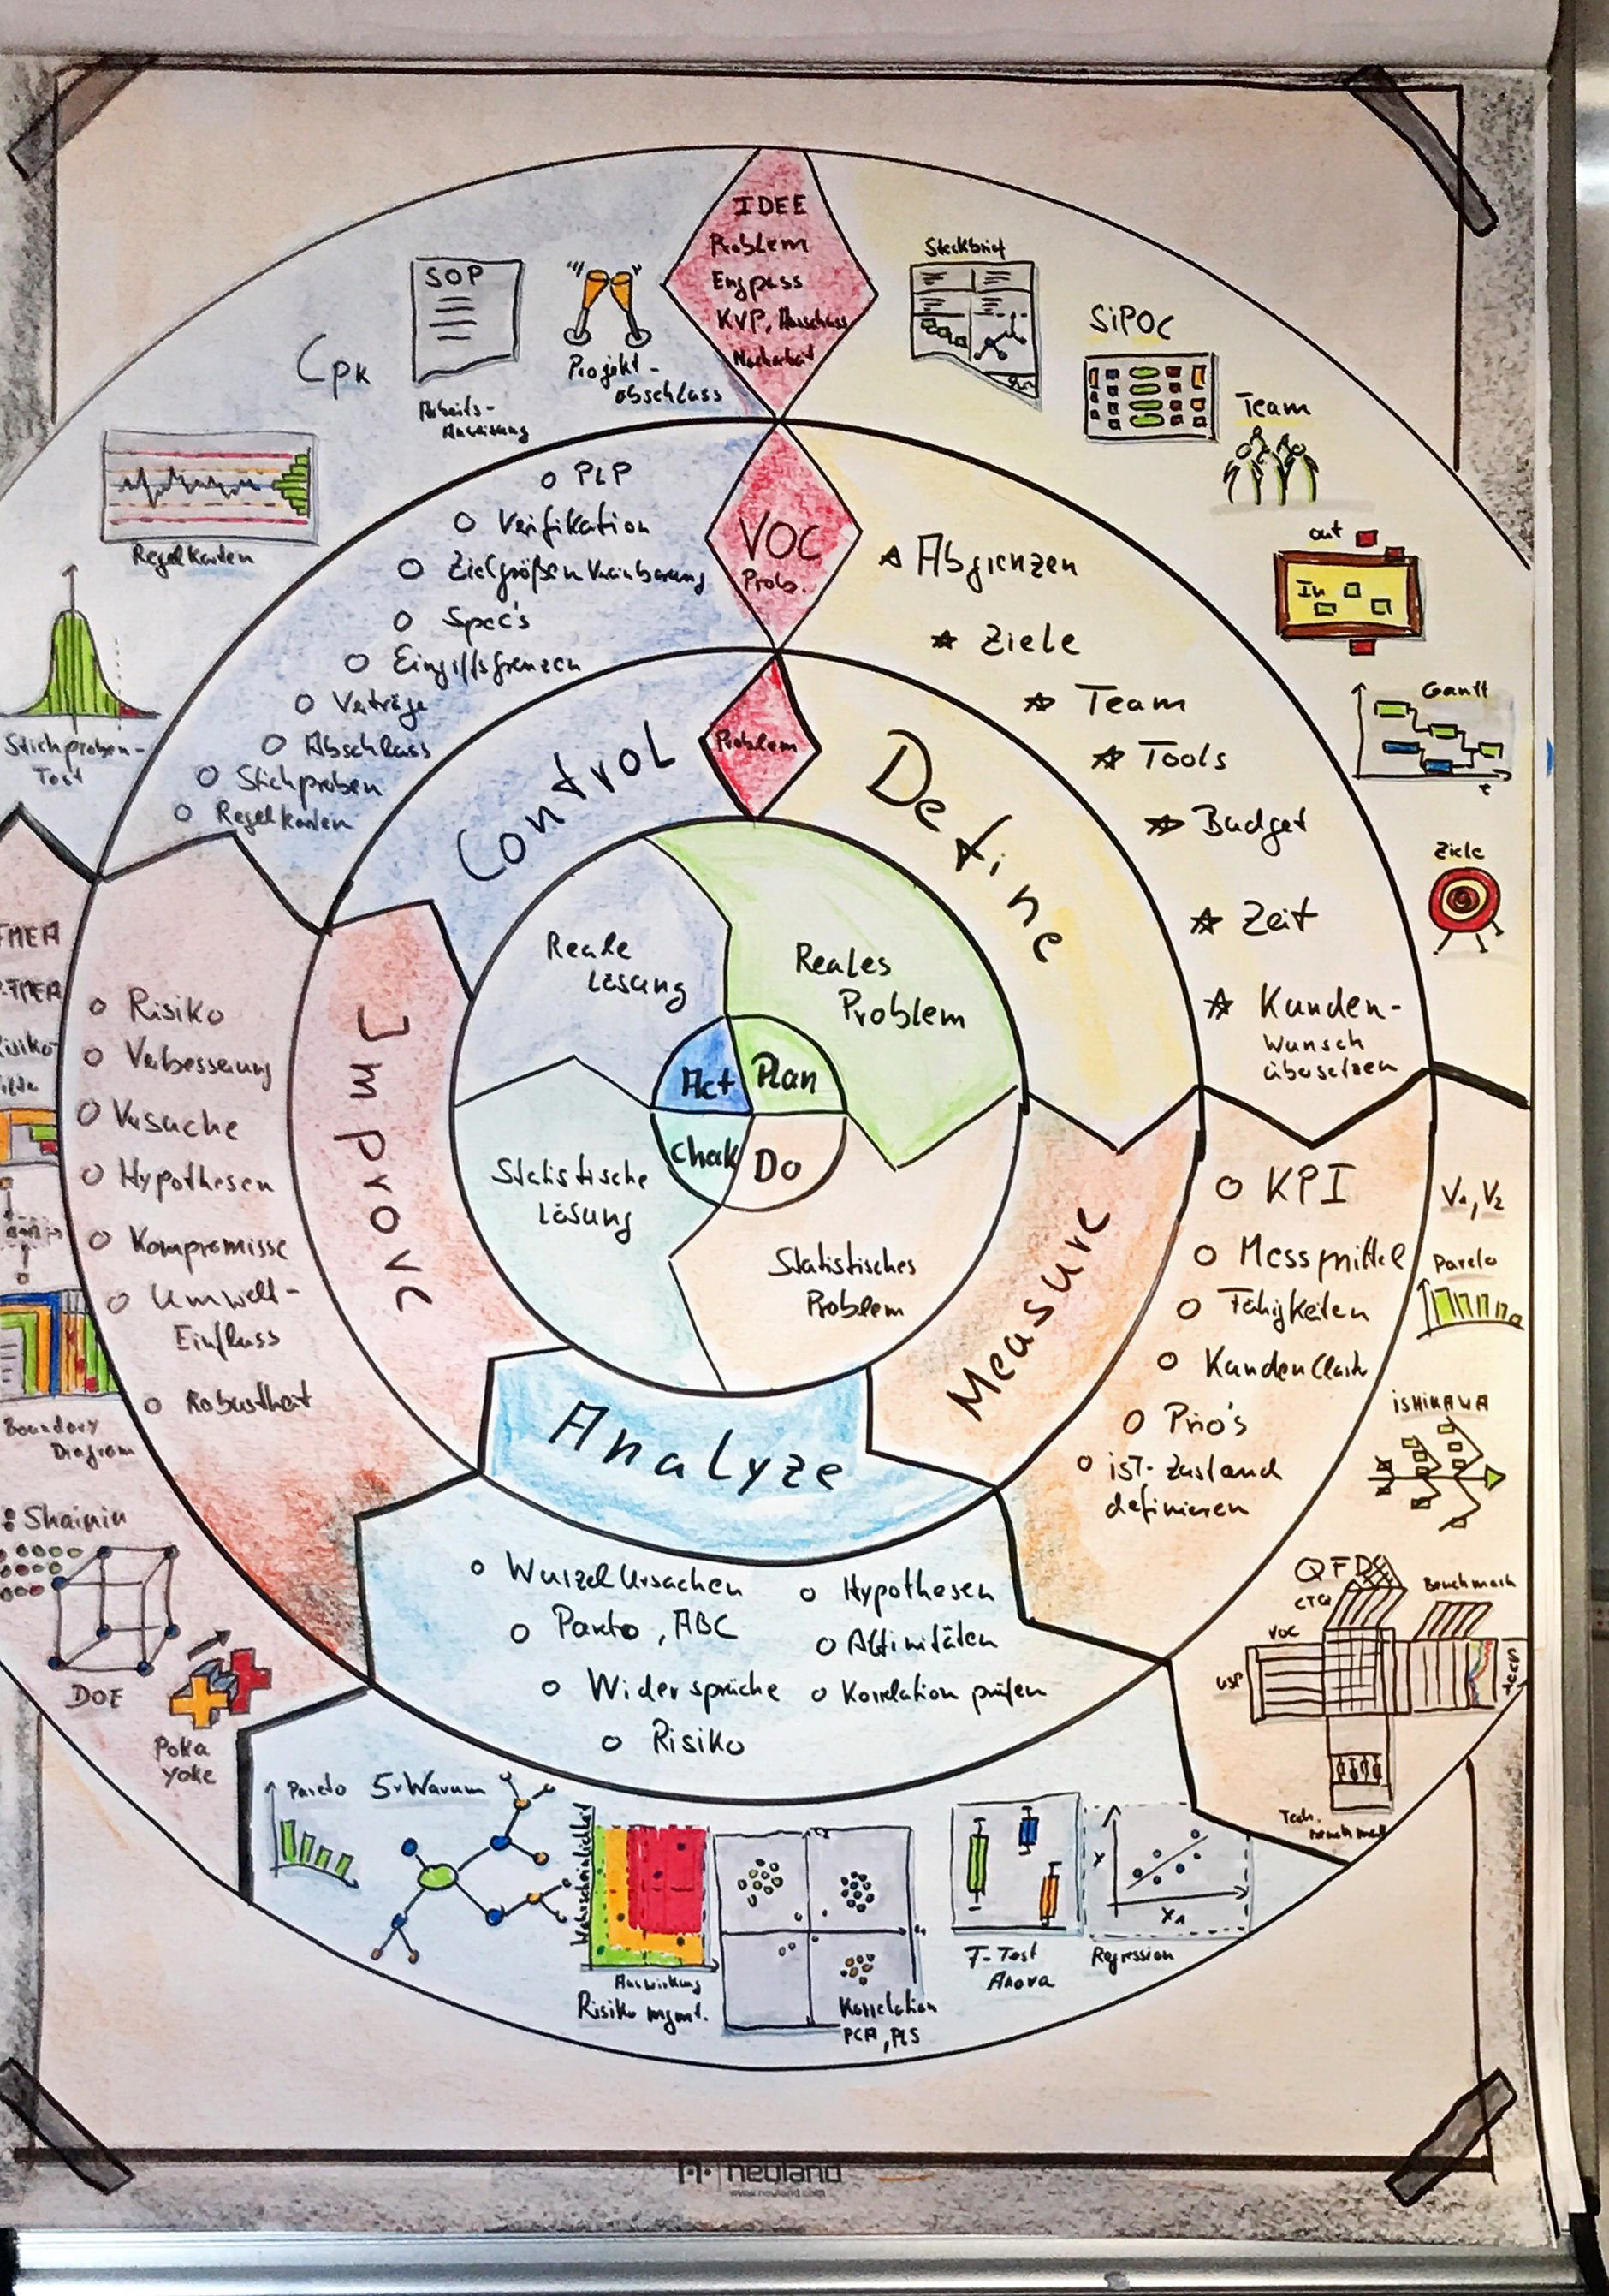 IDEE
Problem
Engpass
KVP, Ausschuss
Nacharbeit
VOC
Prob.
Problem
Steckbrief
SiPOC
Team
out
In
Gantt
t
Ziele
Define
☆ Abgrenzen
☆ Ziele
☆ Team
☆ Tools
☆ Budget
☆ Zeit
☆ Kunden-
Wunsch
übersetzen
Reales
Problem
Plan
Do
Act
Statistisches
Problem
Measure
o KPI
o Messmittel
o Fähigkeiten
o Prio's
o isT-Zustand
definieren
V1, V2
Pareto
iSHIKAWA
QFD
CTQ
VOC
USP
Benchmark
Tech.
Analyze
o Wurzel Ursachen
o Pareto, ABC
o Widersprüche
o Risiko
o Hypothesen
o Affinitäten
o Korrelation prüfen
Pareto
5xWarum
Wahrscheinlichkeit
Auswirkung
Risiko mgmt.
Korrelation
PCA, PLS
T-Test
Anova
Y
X1
Regression
Statistische
Lösung
Improve
o Risiko
o Verbesserung
o Hypothesen
o Kompromisse
o Umwelt-
Einfluss
o Robustheit
FMEA
Boundary
Diagram
Shainin
DOE
Poka
Yoke
Reale
Lösung
Control
o PLP
o Verifikation
o Zielgrößen Vereinbarung
o Spec's
o Eingriffsgrenzen
o Verträge
o Abschluss
o Stichproben
o Regelkarten
SOP
Arbeits-
Anweisung
Projekt-
abschluss
Cpk
Regelkarten
Stichproben-
Test
neuland